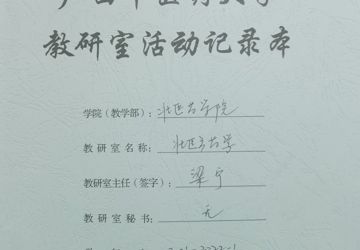 广西中医药大学
教研室活动记录本
学院（教学部）：壮医药学院
教研室名称：壮医方药学
教研室主任（签字）：梁宁
教研室秘书：无